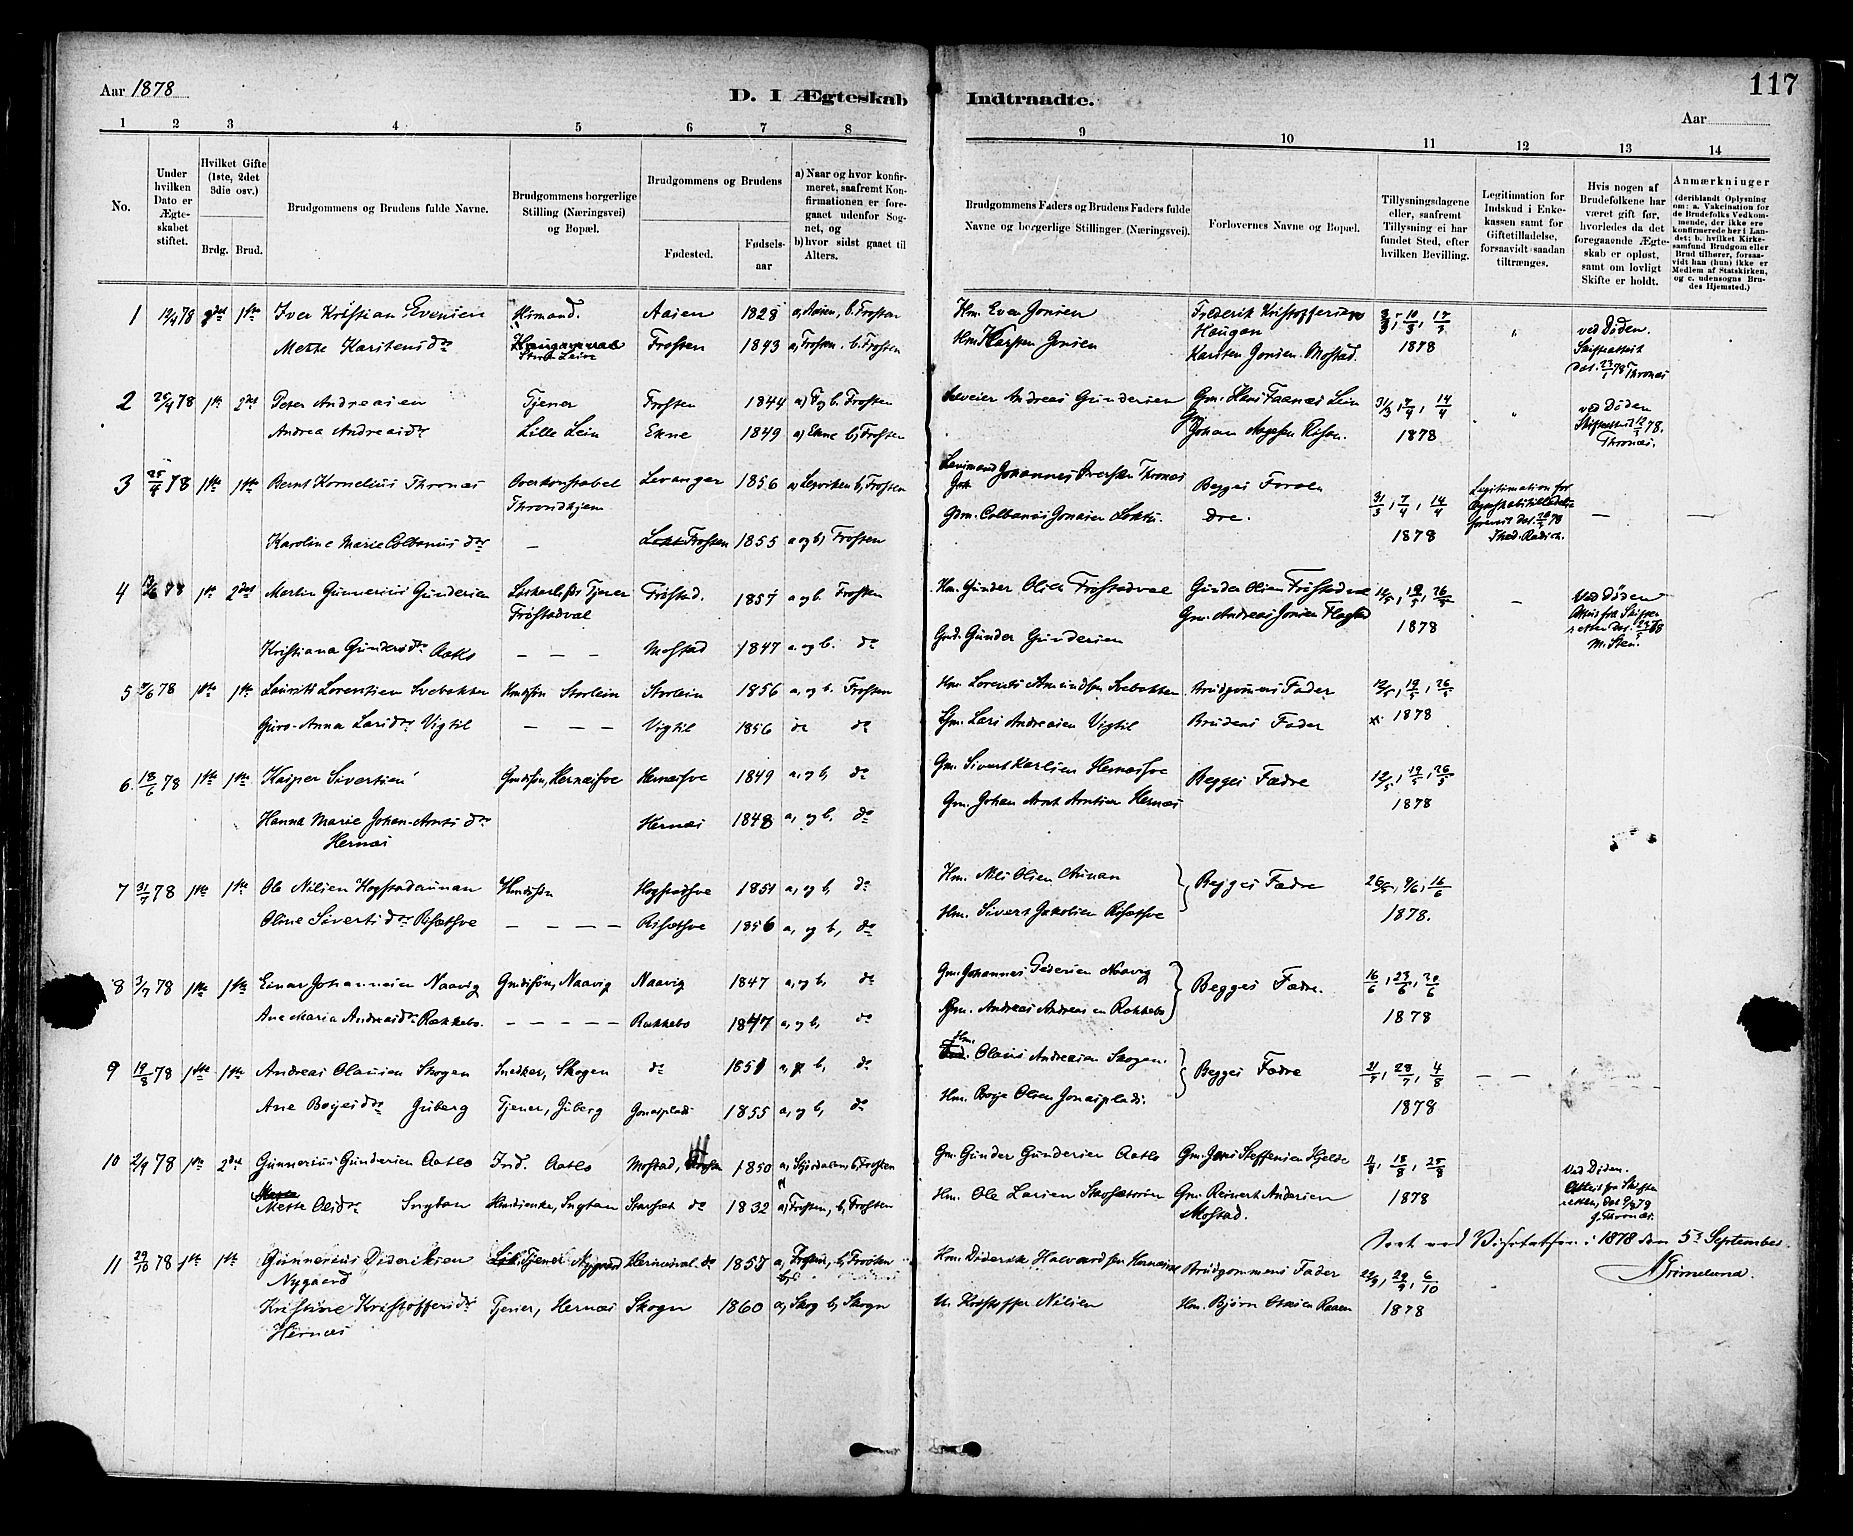 117
Aar 1878
D. I Ægteskab Indtraadte.
Aar
1 2 3 4 5 6 7 8 9 10 11 12 13 14
No.
Under hvilken Dato er Ægteskabet stiftet.
Hvilket Gifte (1ste, 2det 3die osv.)
Brdg. Brud.
Brudgommens og Brudens fulde Navne.
Brudgommens borgerlige Stilling (Næringsvei) og Bopæl.
Brudgommens og Brudens
Fødested. Fødselsaar
a) Naar og hvor konfirmeret, saafremt Konfirmationen er foregaaet udenfor Sognet, og
b) hvor sidst gaaet til Alters.
Brudgommens Faders og Brudens Faders fulde Navne og borgerlige Stillinger (Næringsvei).
Forlovernes Navne og Bopæl.
Tillysningsdagene eller, saafremt Tillysning ei har fundet Sted, efter hvilken Bevilling.
Legitimation for Indskud i Enkekassen samt for Giftetilladelse, forsaavidt saadan tiltrænges.
Hvis nogen af Brudefolkene har været gift før, hvorledes da det foregaaende Ægteskab er opløst, samt om lovligt Skifte er holdt.
Anmærkninger (deriblandt Oplysning om: a. Vakcination for de Brudefolks Vedkommende, der ikke ere konfirmerede her i Landet; b. hvilket Kirkesamfund Brudgom eller Brud tilhører, forsaavidt han (hun) ikke er Medlem af Statskirken, og c. udensogns Brudes Hjemsted.)
1 12/4 78 2det 1ste Iver Kristian Evensen Aasen 1828 a, Aasen, b. Frosten Hm. Even Jonsen Frederik Kristoffersen Haugan 3/3, 10/3, 17/3 1878 ved Døden. Skifteattest dat. 23/1 78 Thronæs
Mette Karstensdr Frosten 1843 a, Frosten. b. Frosten Hm. Karsten Jonsen Karsten Jonsen Mostad.
2 26/4 78 1ste 2det Peter Andreassen Tjener Frosten 1844 a) og b. Frosten Andreas Gundersen Gm. Hans Faanæs Lein 31/3, 7/4, 14/4 1878 ved Døden Skifteattest 12/3 78. Thronæs.
Andrea Andreasdr Lille Lein Ekne 1849 a) Ekne b, Frosten Gm. Johan
3 25/4 78 1ste 1ste Bernt Kornelius Thronæs Overkonstabel Throndhjem Levanger 1856 b, Frosten Johannes Thronæs Begges Forældre. 31/3, 7/4, 14/4 1878 Legitimation for
Karoline Marie Colbanus dr — Frosten 1855 a og b) Frosten Gdm. Colbanus Jonsen
4 78 1ste 2det Martin Gunnerius Gundersen Tjener Frøstadval Frøstad. 1857 a og b. Frosten Hm. Gunder Olsen Frøstadval Gunder Olsen Frøstadval 12/5, 19/5, 26/5 1878 Ved Døden Attest fra Skifteretten
Kristiana Gundersdr Aatlo — — — Mostad 1847 a og b. do Gmd. Gunder Gundersen Gm. Andreas Jonsen Flagstad
5 78 1ste 1ste Laurits Lorentsen Svebakken Storlein Storlein 1856 a, og b. Frosten Hm. Lorents Amundsen Svebakken Brudgommens Fader 12/5, 19/5, 26/5 1878
Guro-Anna Larsdr Vigtil — — — Vigtil 1856 do do Gm. Lars Andreassen Vigtil Brudens Fader
6. 18/6 78 1ste 1ste Kasper Sivertsen Gmdssøn, Hernæsfve Hernæsfve 1849 a, og b, do Gm. Sivert Karlsen Hernæsfve Begges Fædre 12/5, 19/5, 26/5 1878
Hanna Marie Johan-Arnts dr Hernæs Hernæs 1848 a, og b. do Gm. Johan Arnt Arntsen Hernæs
7 31/7 78 1ste 1ste Ole Nilsen Hogstadaunan Hmdssøn Hogstadfve 1851 a, og b, do Hm. Nils Olsen Aunan Begges Fædre 26/5, 9/6, 16/6 1878.
Oline Siverts dr Risætfve — — — — Risætfve 1856 a, og b, do Hm. Sivert Jakobsen Risætfve
8 3/7 78 1ste 1ste Einar Johannesen Naavig Gmdssøn, Naavig Naavig 1847 a, og b, do Gm. Johannes Pedersen Naavig Begges Fædre. 16/6, 23/6, 30/6 1878
Ane Maria Andreasdr Rækkebo. — — — — Rækkebo 1847 a, og b, do Gm. Andreas Andreassen Rækkebo
9 19/8 78 1ste 1ste Andreas Olausen Skogen Snedker, Skogen do 1851 a, og b, do Hm. Olaus Andreassen Skogen. Begges Fædre 21/7, 28/7, 4/8 1878 — — — —
Ane Boyesdr Juberg Tjener, Juberg Jonasplads 1855 a, og b, do Hm. Boje Olsen Jonasplads.
10 2/9 78 1ste 2det Gunnerius Gundersen Aatlo Ind. Aatlo Mostad, 1850 a, Stjørdalen, b, Frosten Gm. Gunder Gundersen Aatlo Gm. Jens Steffensen Hjelde 11/8, 18/8, 25/8 1878 Ved Døden. Attest fra Skifteretten, Thronæs.
Mette Olsdr do 1832 a, Frosten, b, Frosten Hm. Ole Larsen Gm. Reinert Andersen Mostad.
Seet ved Visitatsen i 1878 den 5te September.
11 29/10 78 1ste 1ste Gunnerius Dideriksen Nygaard Tjener Nygaard Hernæsval. do 1857 a, Frosten, b, Frosten Hm. Diderik Halvardsen Hernæsval Brudgommens Fader 22/9, 29/9, 6/10 1878
Kristine Kristoffersdr Hernæs Tjener, Hernæs Skogn 1860 a, Skog b, Skogn Kristoffer Nilsen Hm. Bjørn